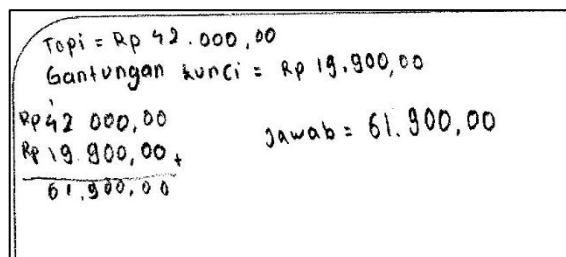 Topi = Rp 42.000,00
Gantungan kunci = Rp 19.900,00
1
Rp 42 000,00
Rp 19.900,00 +
61.900,00
Jawab = 61.900,00